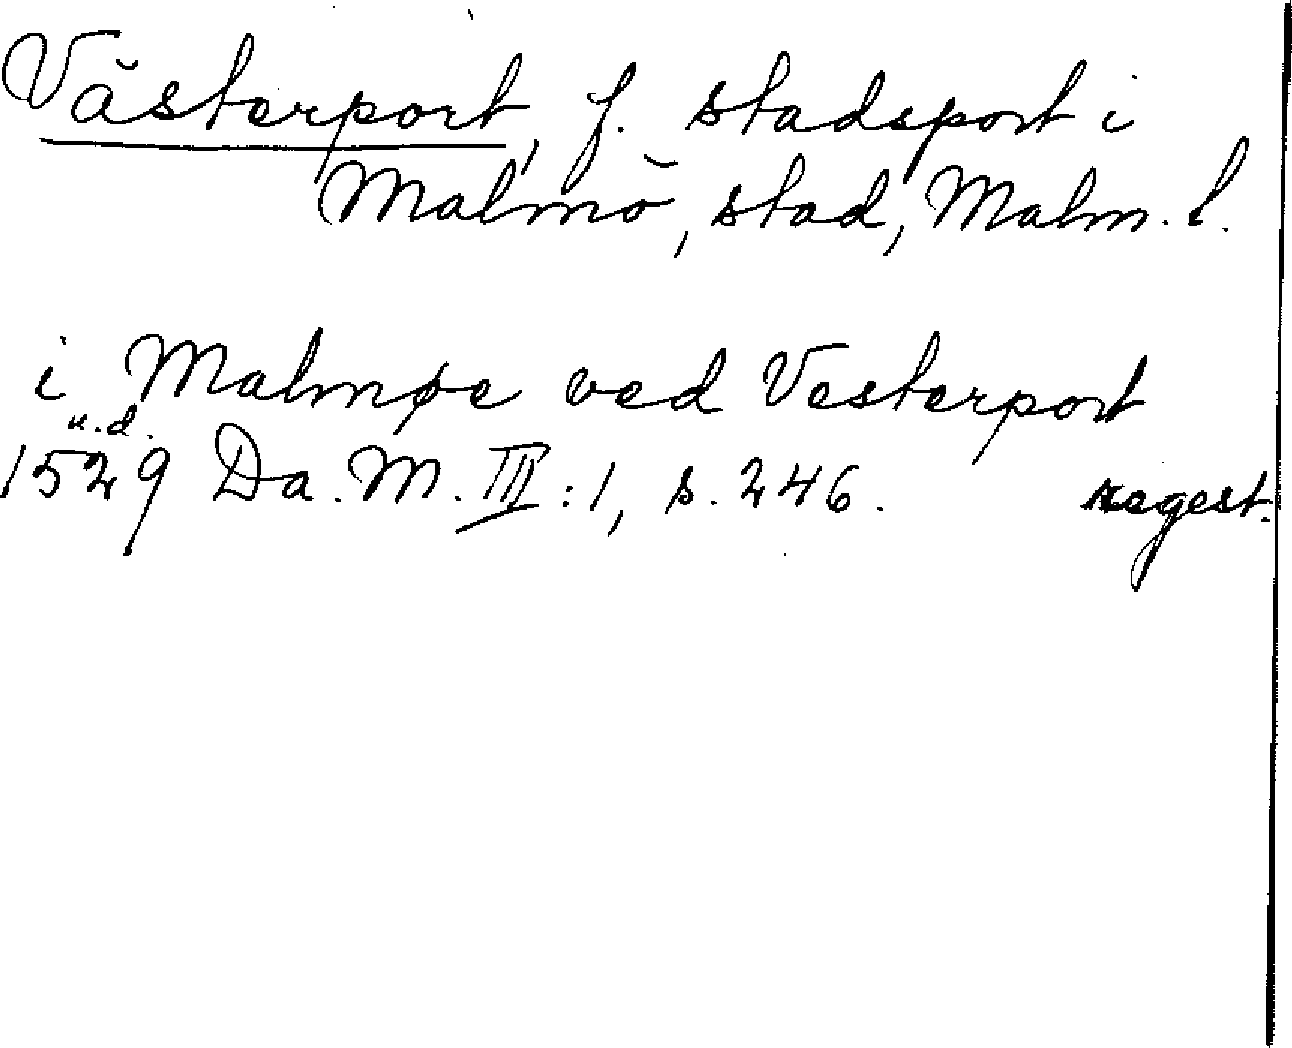 Västerport, f. stadsport i
Malmö, stad, Malm. l.
i Malmøe ved Vesterport
u.d.
1529 Da. M. III:1, s. 246. regest.